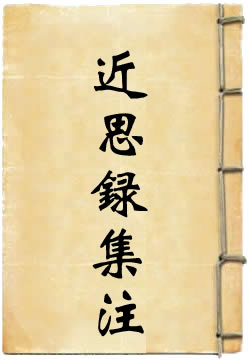 近思録集注